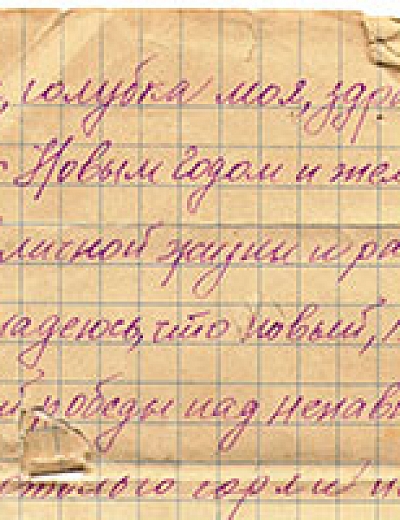 , голубка моя, здра
с Новым Годом и жел
личной жизни и ра
надеюсь, что новый,
й победы над ненав
горя и